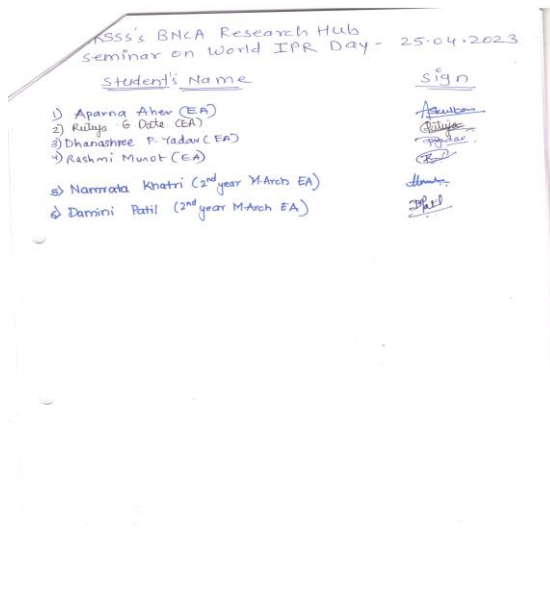 KSSS's BNCA Research Hub
Seminar on World IPR Day - 25.04.2023
Student's Name Sign
1) Aparna Aher (EA)
2) Rutuja G Date (EA)
3) Dhanashree P. Yadav (EA)
4) Rashmi Munot (EA)
5) Namrata Khatri (2nd year M.Arch EA)
6) Damini Patil (2nd year M.Arch EA) DPatil